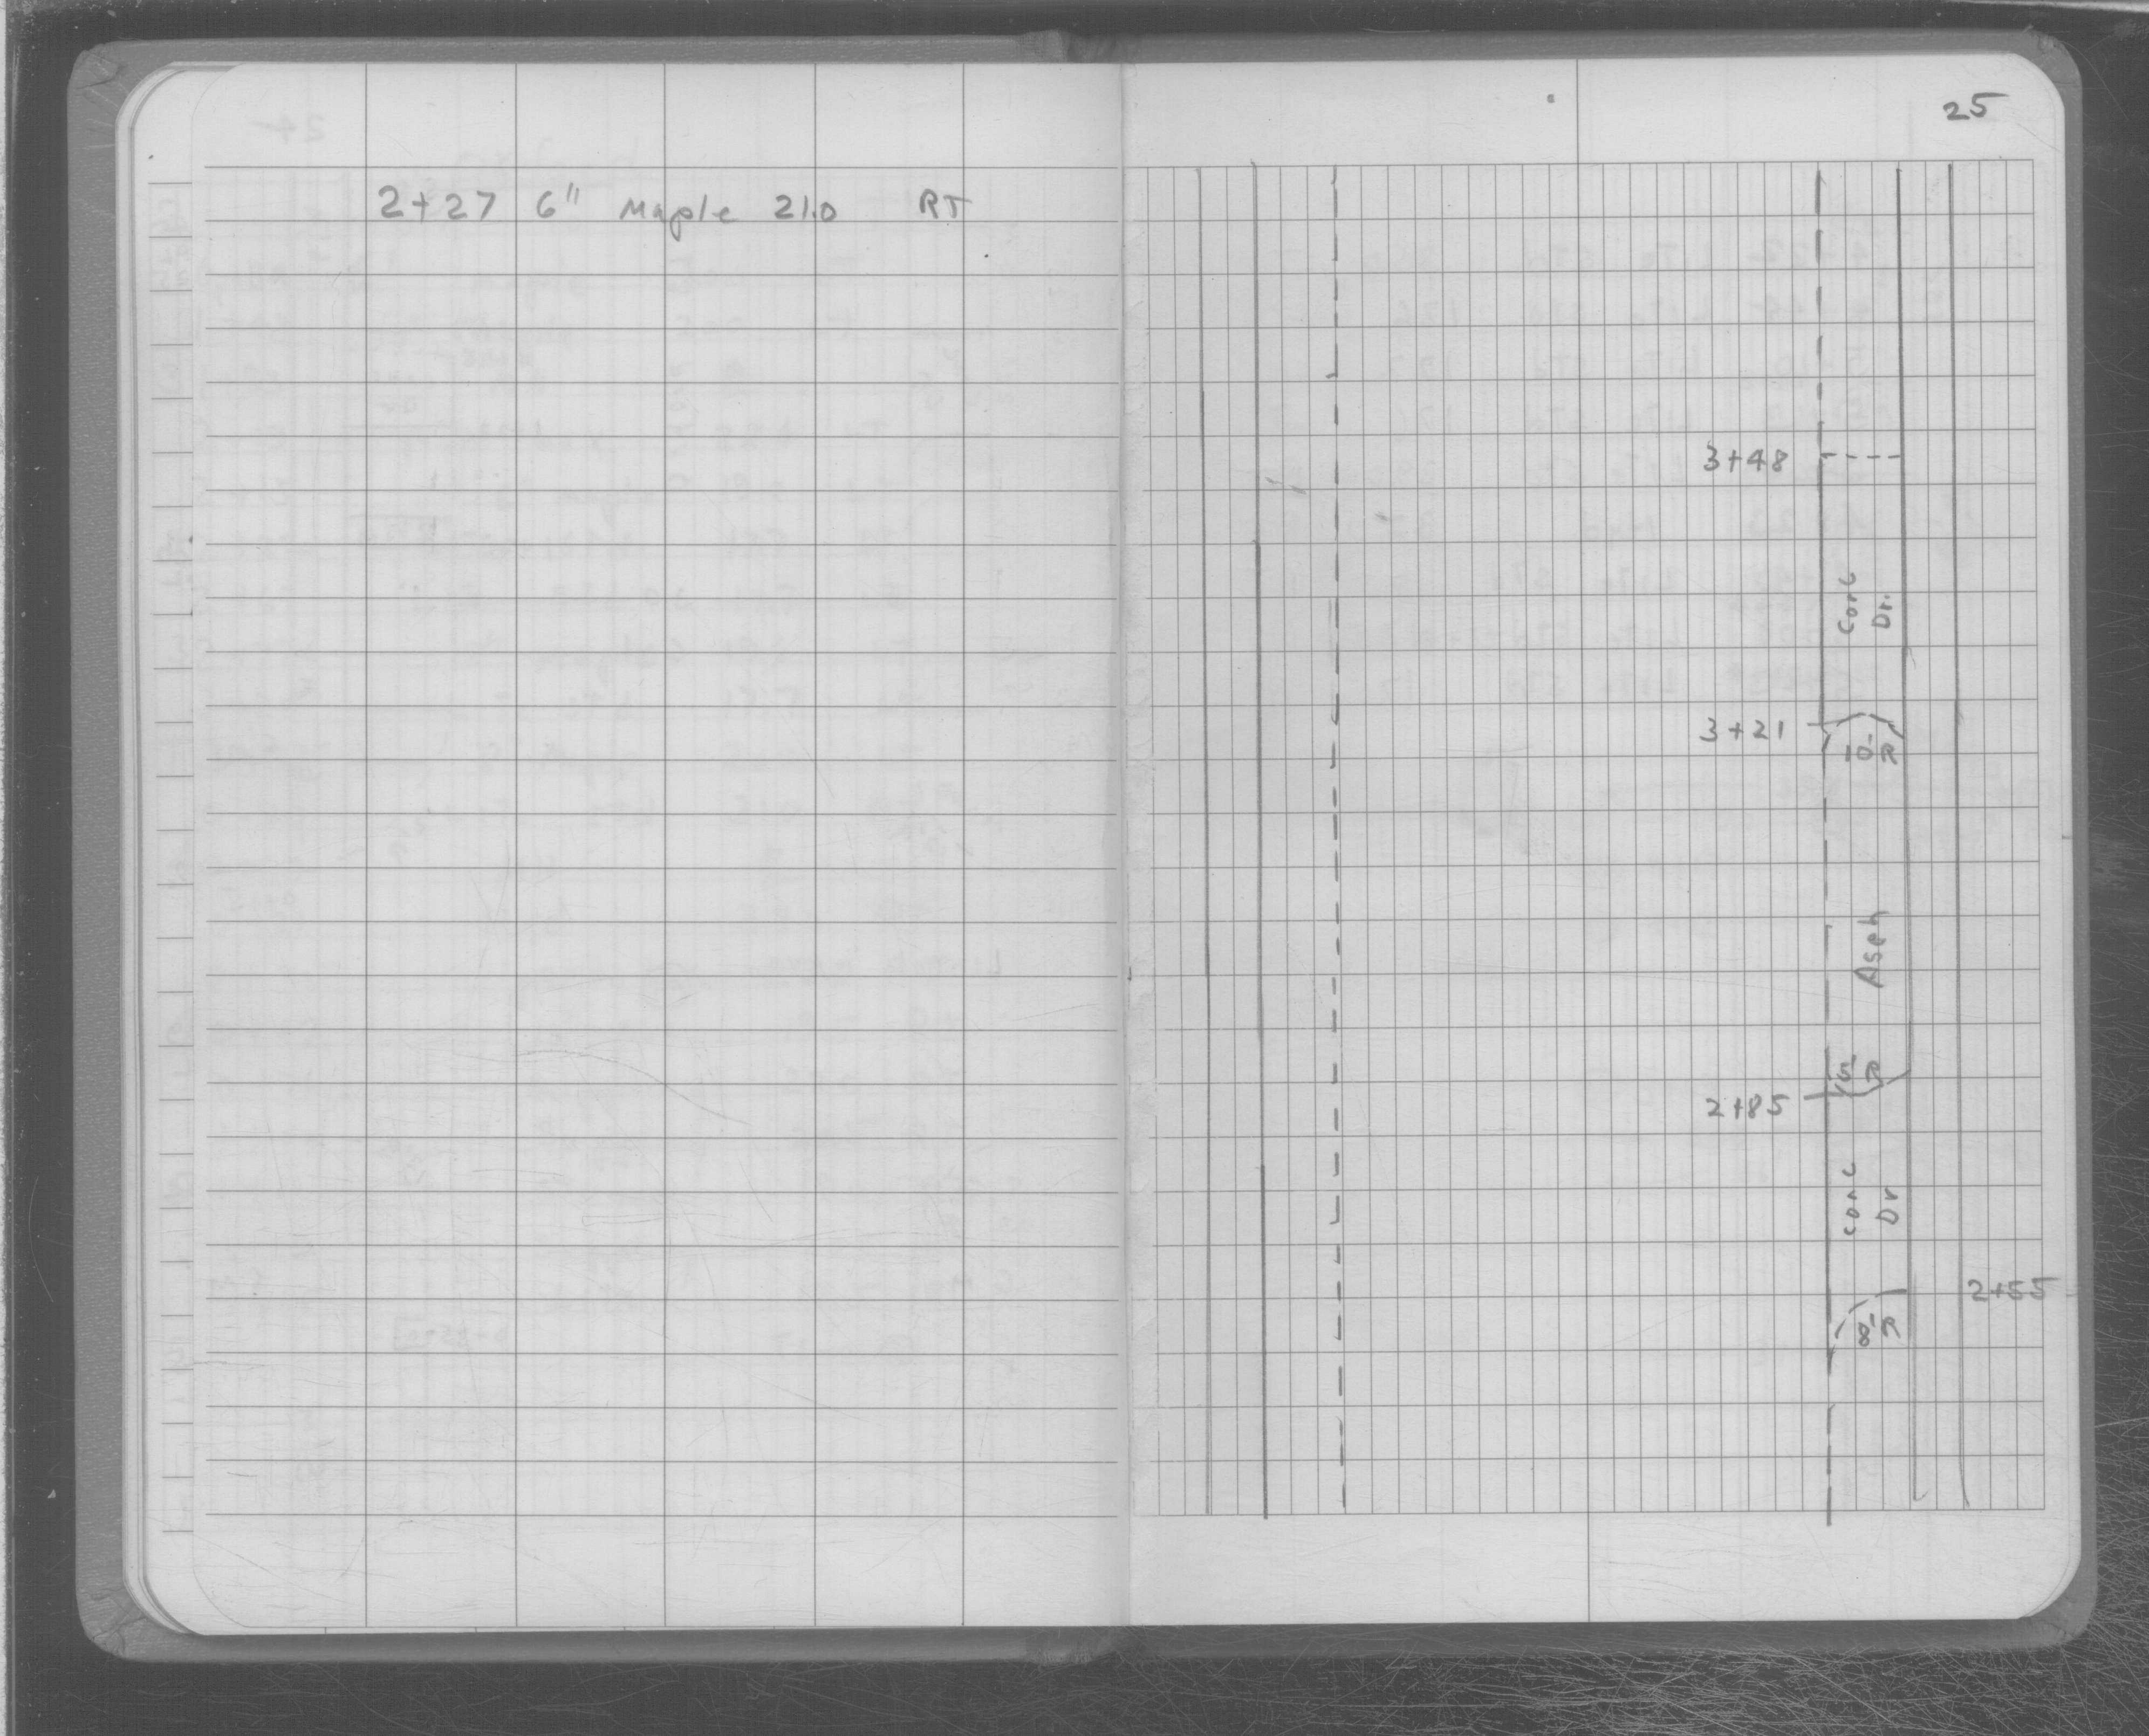 2+27 6" Maple 21.0 RT
25
3+48
Conc
Dr.
3+21
10-
R
Asph
15
R
2+85
Conc
Dr
2+55
8-
R